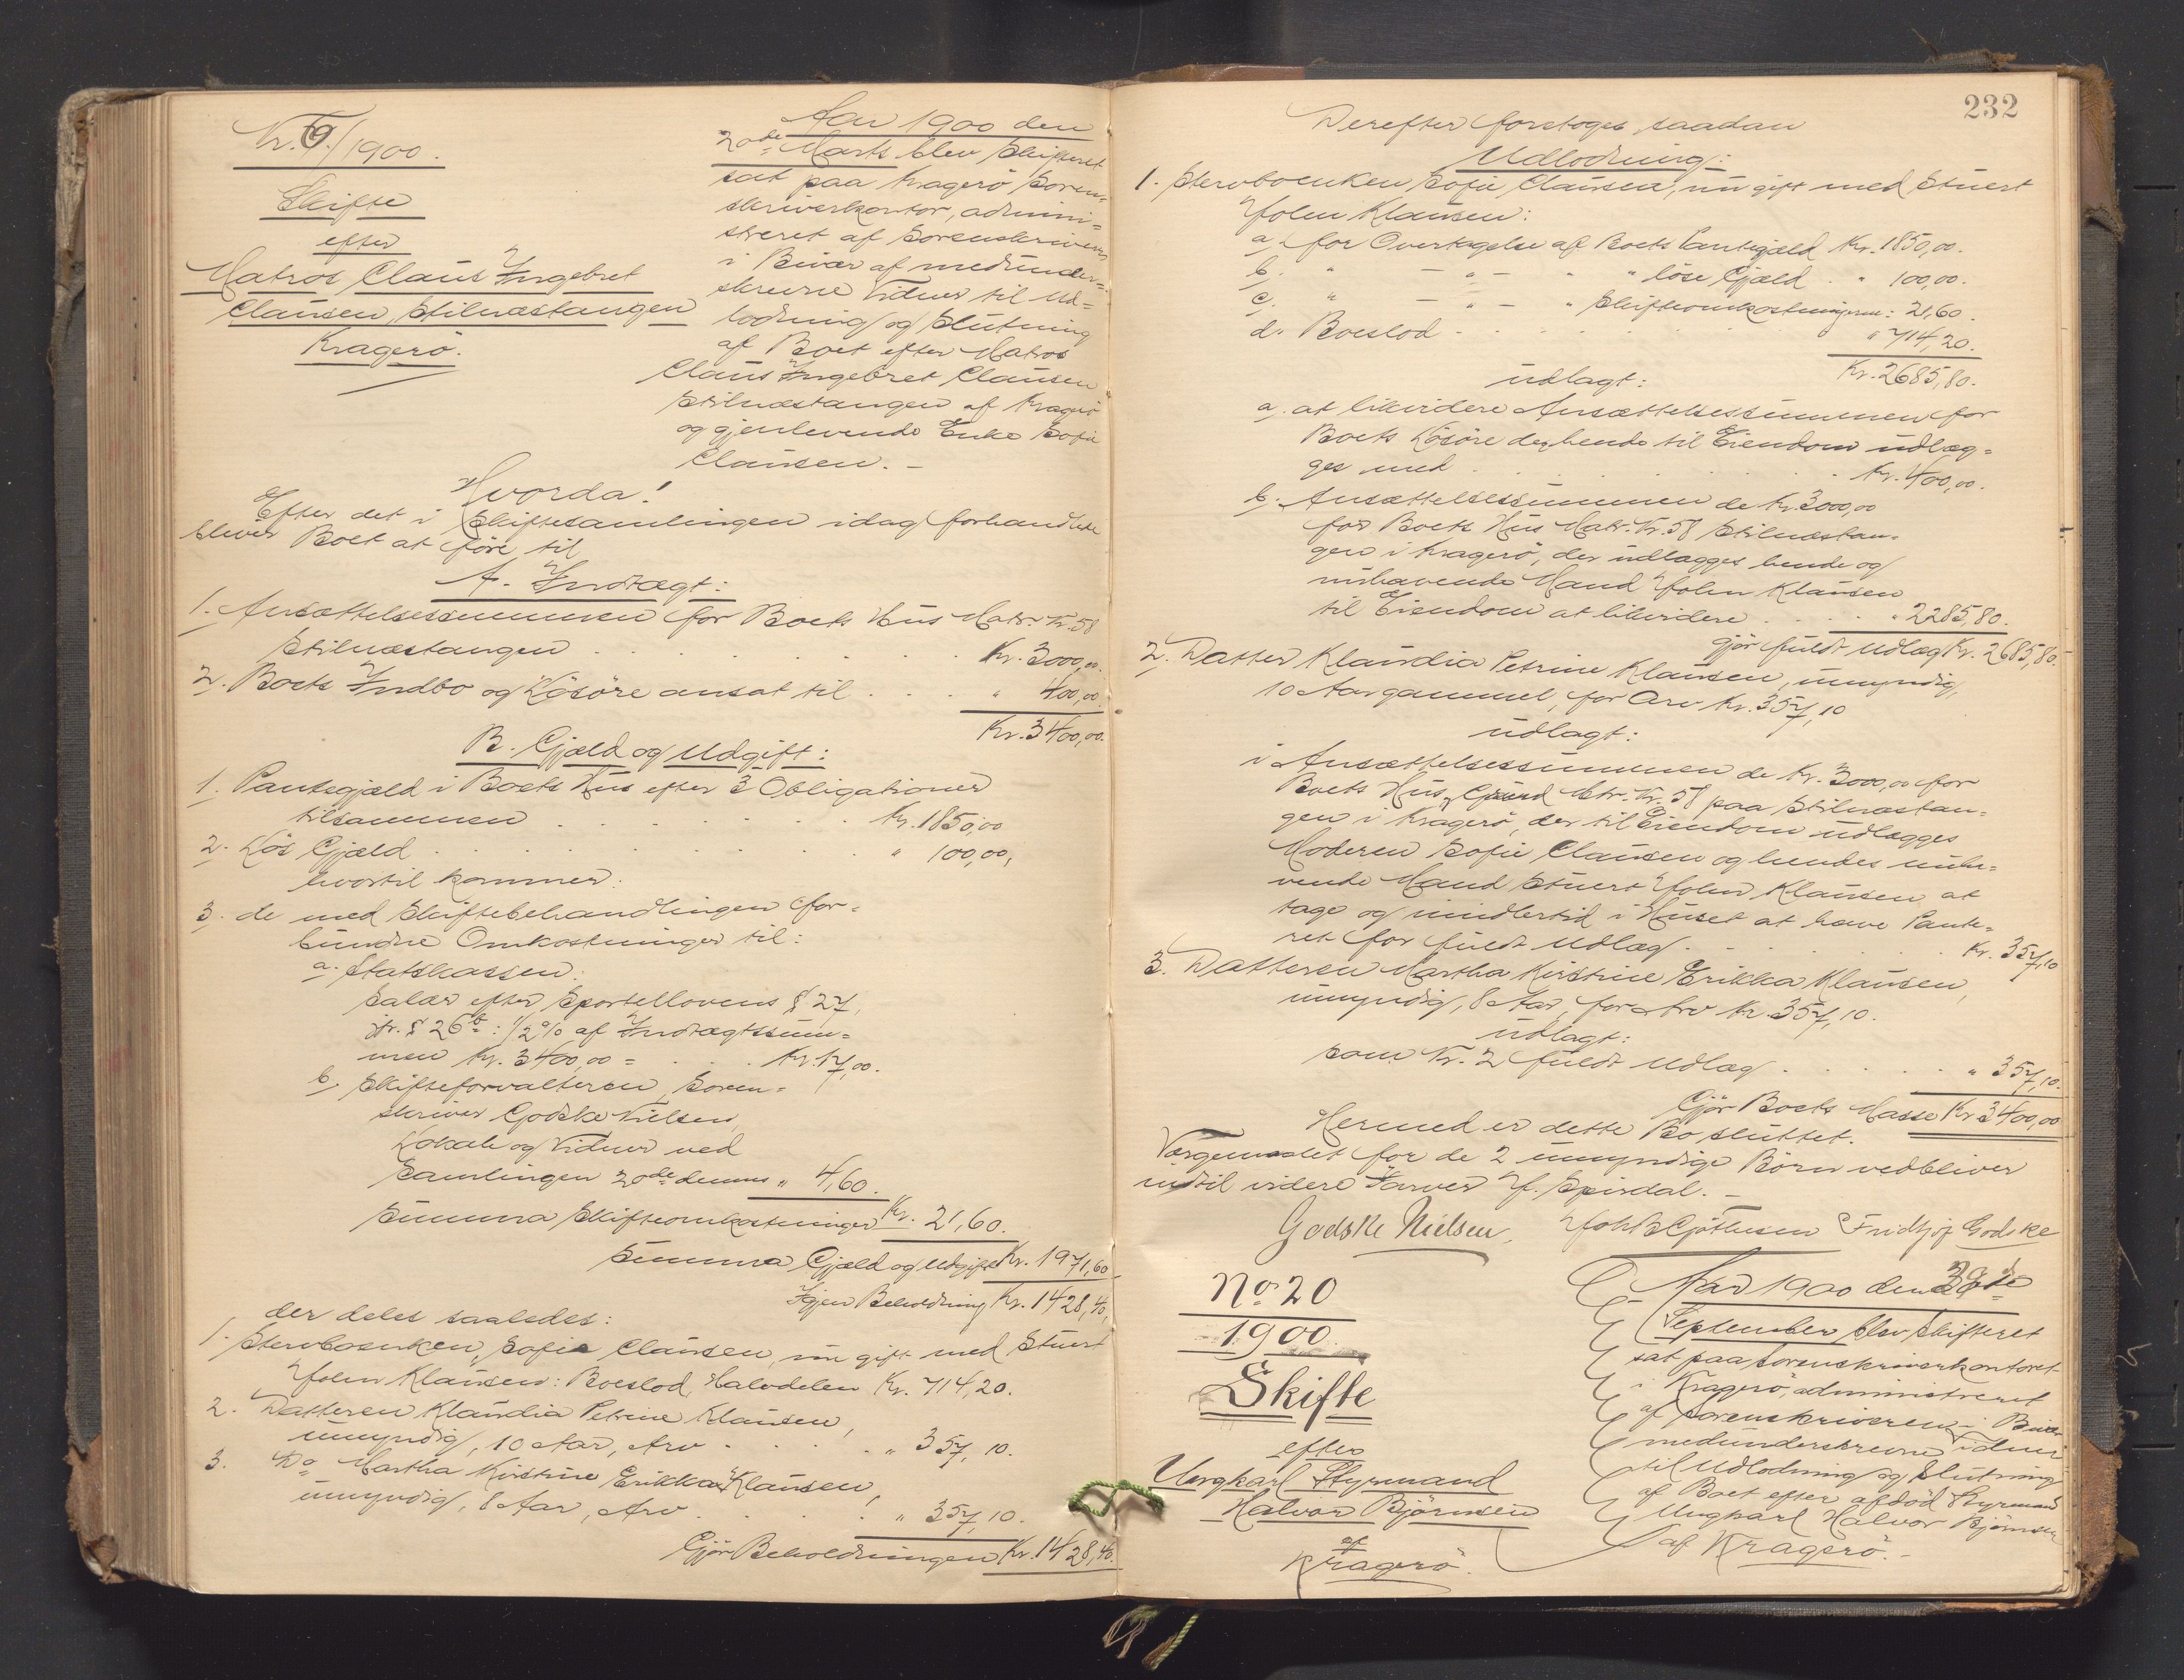 Nr. 9/1900.
Skifte
efter
Matros Claus Ingebret
Clausen, Stilnæstangen
Kragerö.
Aar 1900 den
20de Marts blev Skifteret
sat paa Kragerö Soren-
skriverkontor, admini-
streret af Sorenskriveren
i Bivær af medunder-
skrevne Vidner til Ud-
lodning og Slutning
af Boet efter Matros
Claus Ingebret Clausen
Stilnæstangen af Kragerö
og gjenlevende Enke Sofie
Clausen. –
Hvorda!
Efter det i Skiftesamlingen idag forhandlede
bliver Boet at före til
A. Indtægt:
1. Ansættelsessummen for Boets Hus Matr. Nr. 58
Stilnæstangen . . . . . . Kr. 3000,00.
2. Boets Indbo og Lösöre ansat til . . . " 400,00
Kr. 3400,00.
B. Gjæld og Udgift:
1. Pantegjæld i Boets Hus efter 3 Obligationer
tilsammen . . . . . . Kr. 1850,00
2. Lös Gjæld . . . . . . " 100,00,
hvortil kommer:
3. de med Skiftebehandlingen for-
bundne Omkostninger til:
a. Statskassen:
Salær efter Sportellovens § 27,
jfr. § 26b: 1/2 % af Indtægtssum-
men Kr. 3400,00 = . . . Kr. 17,00.
b. Skifteforvalteren, Soren-
skriver Godske Nielsen,
Lokale og Vidner ved
Samlingen 20de dennes " 4,60.
Summa Skifteomkostninger Kr. 21,60.
Summa Gjæld og Udgift Kr. 1971,60
Igjen Beholdning Kr. 1428,40,
der deles saaledes:
1. Stervboenken, Sofie Clausen, nu gift med Stuert
John Klausen: Boeslod, Halvdelen Kr. 714,20.
2. Datteren Klaudia Petrine Klausen,
umyndig, 10 Aar, Arv . . . . " 357,10.
3. Do Martha Kirstine Erikka Klausen,
umyndig, 8 Aar, Arv . . . . " 357,10.
Gjör Beholdningen Kr. 1428,40.
232
Derefter foretoges saadan
Udlodning:
1. Stervboenken Sofie Clausen, nu gift med Stuert
John Klausen:
a. for Overtagelse af Boets Pantegjæld Kr. 1850,00.
b. " – " – " " löse Gjæld . " 100,00.
c. " – " – " Skifteomkostningerne: 21,60.
d. Boeslod . . . . . . " 714,20.
Kr. 2685,80.
udlagt:
a. at likvidere Ansættelsessummen for
Boets Lösöre der hende til Eiendom udlæg-
ges med . . . . . . Kr. 400,00.
b. Ansættelsessummen de Kr. 3000,00
for Boets Hus Matr. Nr. 58 Stilnæstan-
gen i Kragerö, der udlægges hende og
nuhavende Mand John Klausen
til Eiendom at likvidere . . . . " 2285,80.
gjör fuldt Udlæg Kr. 2685,80.
2. Datter Klaudia Petrine Klausen, umyndig,
10 Aar gammel, for Arv Kr. 357,10
udlagt:
i Ansættelsessummen de Kr. 3000,00 for
Boets Hus, Grund Mtr. Nr. 58 paa Stilnæstan-
gen i Kragerö, der til Eiendom udlægges
Moderen Sofie Clausen og hendes nuha-
vende Mand Stuert John Klausen at
tage og imidlertid i Huset at have Pante-
ret for fuldt Udlæg . . . . . Kr. 357,10
3. Datteren Martha Kirstine Erikka Klausen,
umyndig, 8 Aar, for Arv Kr 357,10.
udlagt:
som Nr. 2 fuldt Udlæg . . . . . " 357,10.
Gjör Boets Masse Kr 3400,00
Hermed er dette Bo sluttet.
Værgemaalet for de 2 umyndige Börn vedbliver
indtil videre Farver J. Spirdal. –
Godske Nielsen. Joh B Gjöthesen Fridtjof Godske
No 20
1900
Skifte
efter
Ungkarl Styrmand
Halvor Björnsen
af
Kragerö.
Aar 1900 den
September blev Skifteret
sat paa sorenskriverkontoret
i Kragerö, administreret
af sorenskriveren i Bivær
medunderskrevne vidner
til Udlodning og Slutning
af Boet efter afdöd Styrmand
Ungkarl Halvor Björnsen
af Kragerö. –